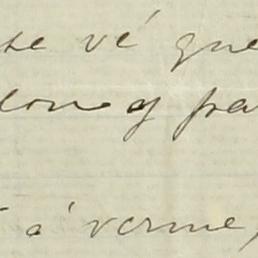 se vé que
lon y pa
á verme,